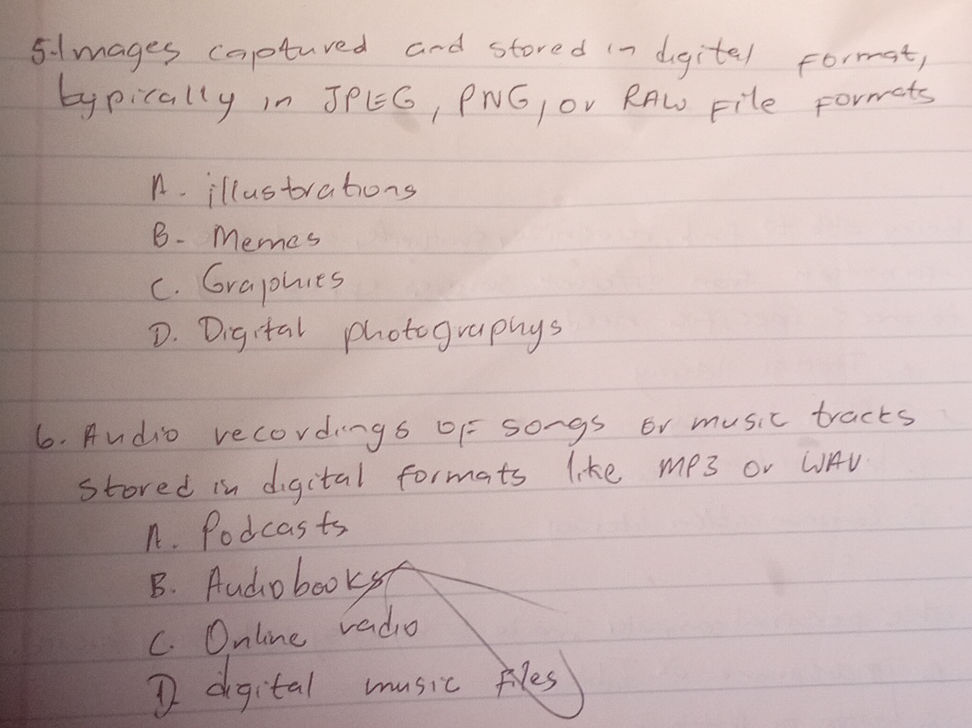 5. Images captured and stored in digital format,
typically in JPEG, PNG, or RAW File formats
A. illustrations
B. Memes
C. Graphics
D. Digital photographys
6. Audio recordings OF songs or music tracks
stored in digital formats like MP3 or WAV.
A. Podcasts
B. Audiobooks
C. Online radio
D digital music files